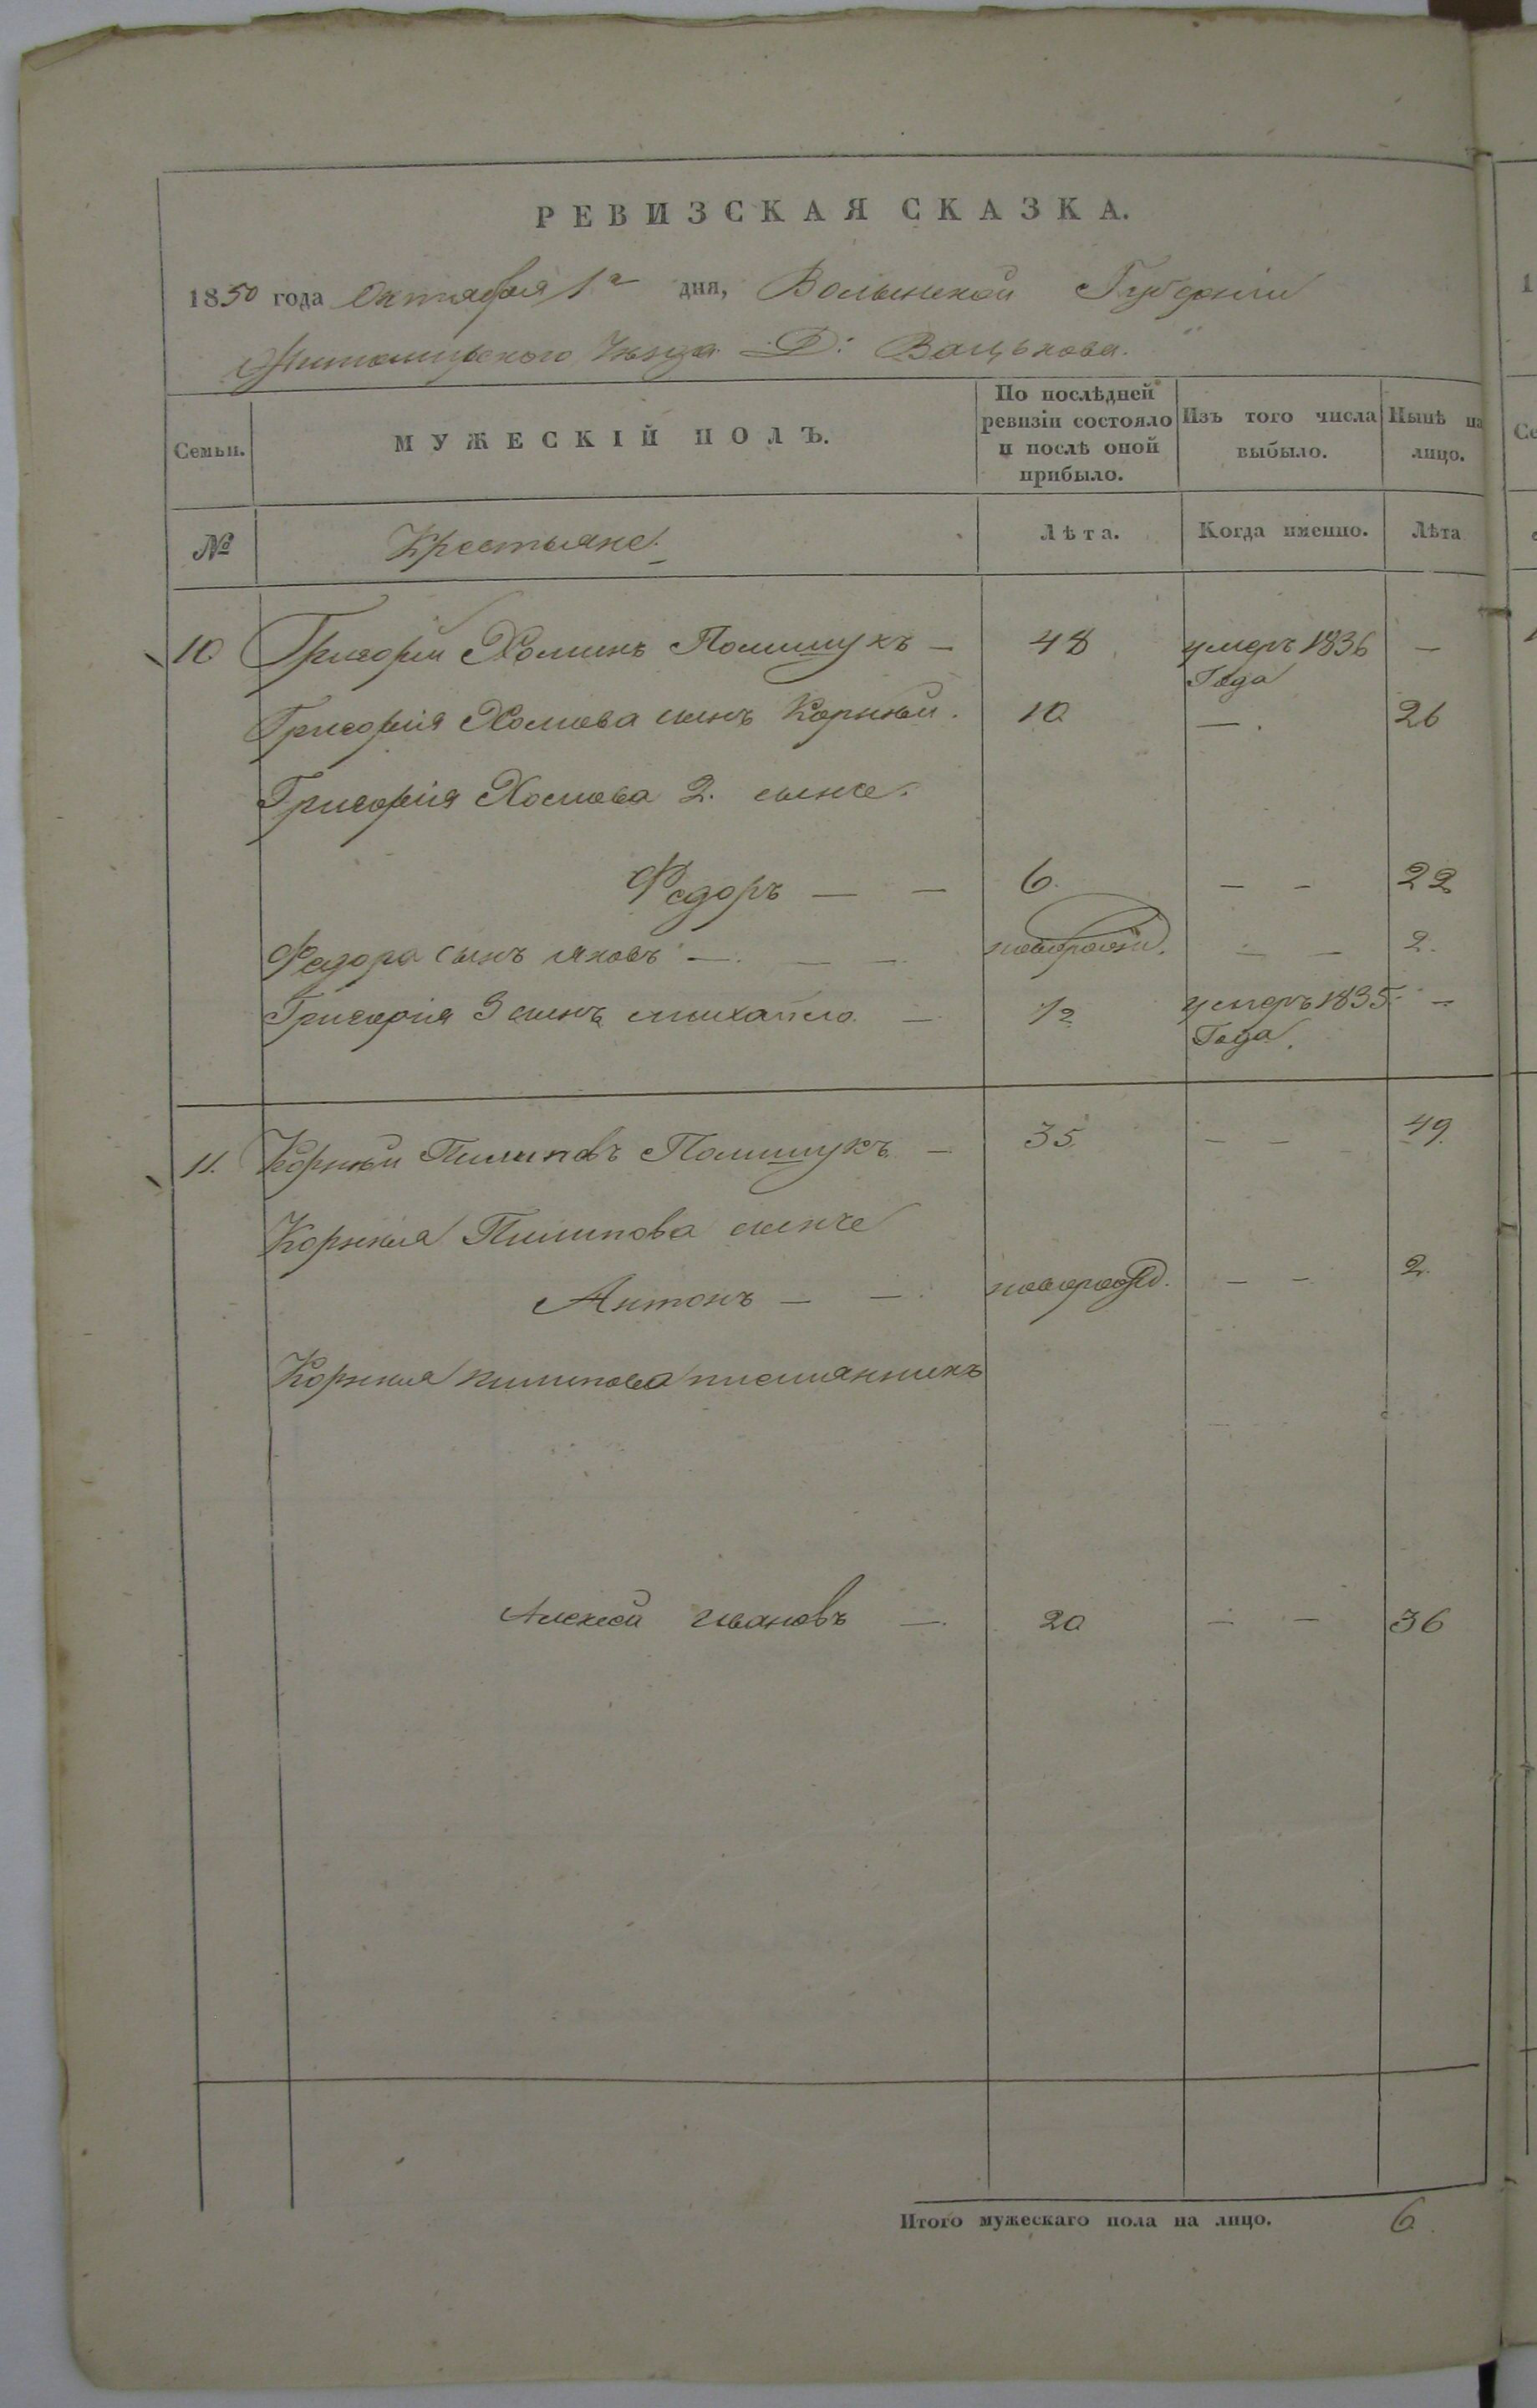 РЕВИЗСКАЯ СКАЗКА.
1850 года Октября 1го дня, Волынской Губернiи
Житомирского Уѣзда Д: Вацькова.
Семьи. МУЖЕСКIЙ ПОЛЪ. По послѣдней ревизiи состояло и послѣ оной прибыло. Изъ того числа выбыло. Нынѣ на лицо.
№ Крестьяне. Лѣта. Когда именно. Лѣта
10 Григорiй Хоминъ Полищукъ — 48 умеръ 1836 Года —
Григорiя Хомова сынъ Корнѣй. 10 — . 26
Григорiя Хомова 2. сынъ.
Федоръ — — 6. — — 22
Федора сынъ Яковъ —. — — новорожд. — — 2.
Григорiя 3 сынъ михайло — 1/2 умеръ 1835 Года. —
11. Корнѣй Пилиповъ Полищукъ — 35 — — 49.
Корнея Пилипова сынъ
Антонъ — — новорожд. — — 2.
Корнея пилипова племянникъ
Алексей Ивановъ — 20 — — 36
Итого мужескаго пола на лицо. 6